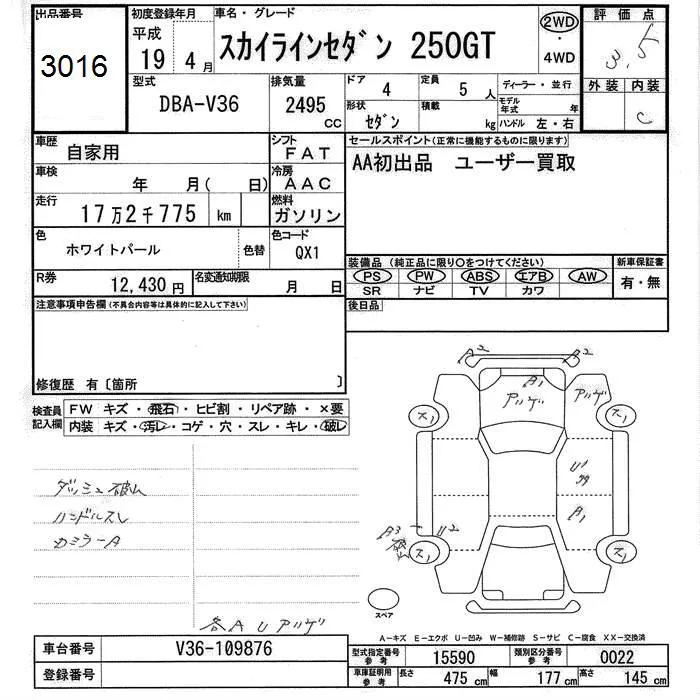 出品番号 初度登録年月 車名・グレード 2WD 評価点
3016 平成 スカイラインセダン 250GT ・ 3.5
19 4月 4WD
型式 排気量 ドア 4 定員 5人 ディーラー・並行 外装 内装
DBA-V36 2495cc 形状 セダン 積載 kg モデル年式 年 C
ハンドル 左・右
車歴 自家用 シフト FAT セールスポイント(正常に機能するものに限ります)
車検 年 月( 日) 冷房 AAC AA初出品 ユーザー買取
走行 17万2千775 km 燃料 ガソリン
色 ホワイトパール 色替 色コード QX1
装備品(純正品に限り○をつけてください) 新車保証書
R券 12,430円 名変通知期限 月 日 PS PW ABS エアB AW 有・無
SR ナビ TV カワ
注意事項申告欄(不具合内容等は具体的に記入して下さい) 後日品
修復歴 有〔箇所 〕
検査員記入欄 FW キズ・飛石・ヒビ割・リペア跡・×要
内装 キズ・汚レ・コゲ・穴・スレ・キレ・破レ
A2 A2
A1
アハゲ アハゲ
ス1 ス1
U1
A1
A3 U2
ス1 ス1
ダッシュ破レ
ハンドルスレ
カミラーA
スペア
各A U アハゲ
A−キズ E−エクボ U−凹み W−補修跡 S−サビ C−腐食 XX−交換済
車台番号 V36-109876 型式指定番号 参考 15590 類別区分番号 参考 0022
登録番号 車庫証明用 参考 長さ 475cm 幅 177cm 高さ 145cm